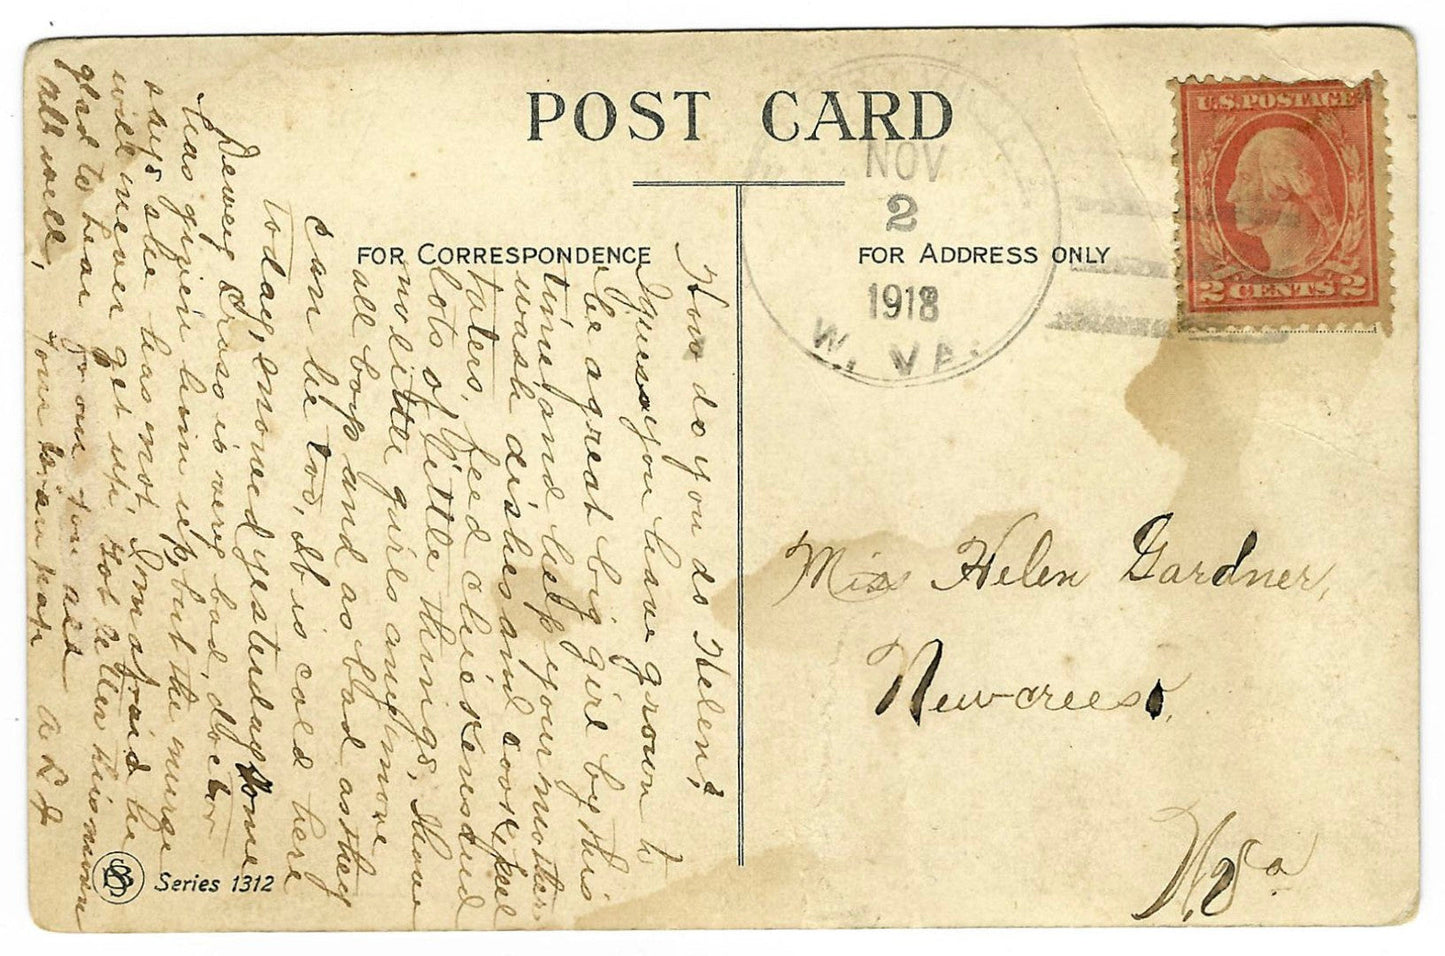 POST CARD
FOR CORRESPONDENCE
FOR ADDRESS ONLY
NOV
2
1918
W. VA.
U.S. POSTAGE
2 CENTS 2
How do you do Helen,
I guess you have grown to
be a great big girl by this
time and help your mother
wash dishes and cook, peel
taters, feed chickens and
lots of little things, I have
no little girls any more
all boys and as bad as they
can be too, it is cold here
today, snowed yesterday some
Dewey is very bad, doctor
has given him up, but the nurse
says she has not. I'm afraid he
will never get up, Got letter this morn
glad to hear from you all
all well,
A L G
Miss Helen Gardner,
Newcreek,
W. Va
Series 1312